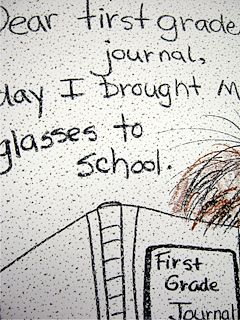 Dear first grade
journal,
day I brought m
glasses to
school.
First
Grade
Journal